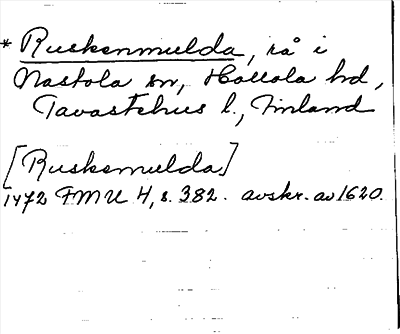 * Ruskenmulda, rå i
Nastola sn, Hollola hd,
Tavastehus l., Finland
[Ruskemulda]
1472 FMU 4, s. 382. avskr. av 1620.